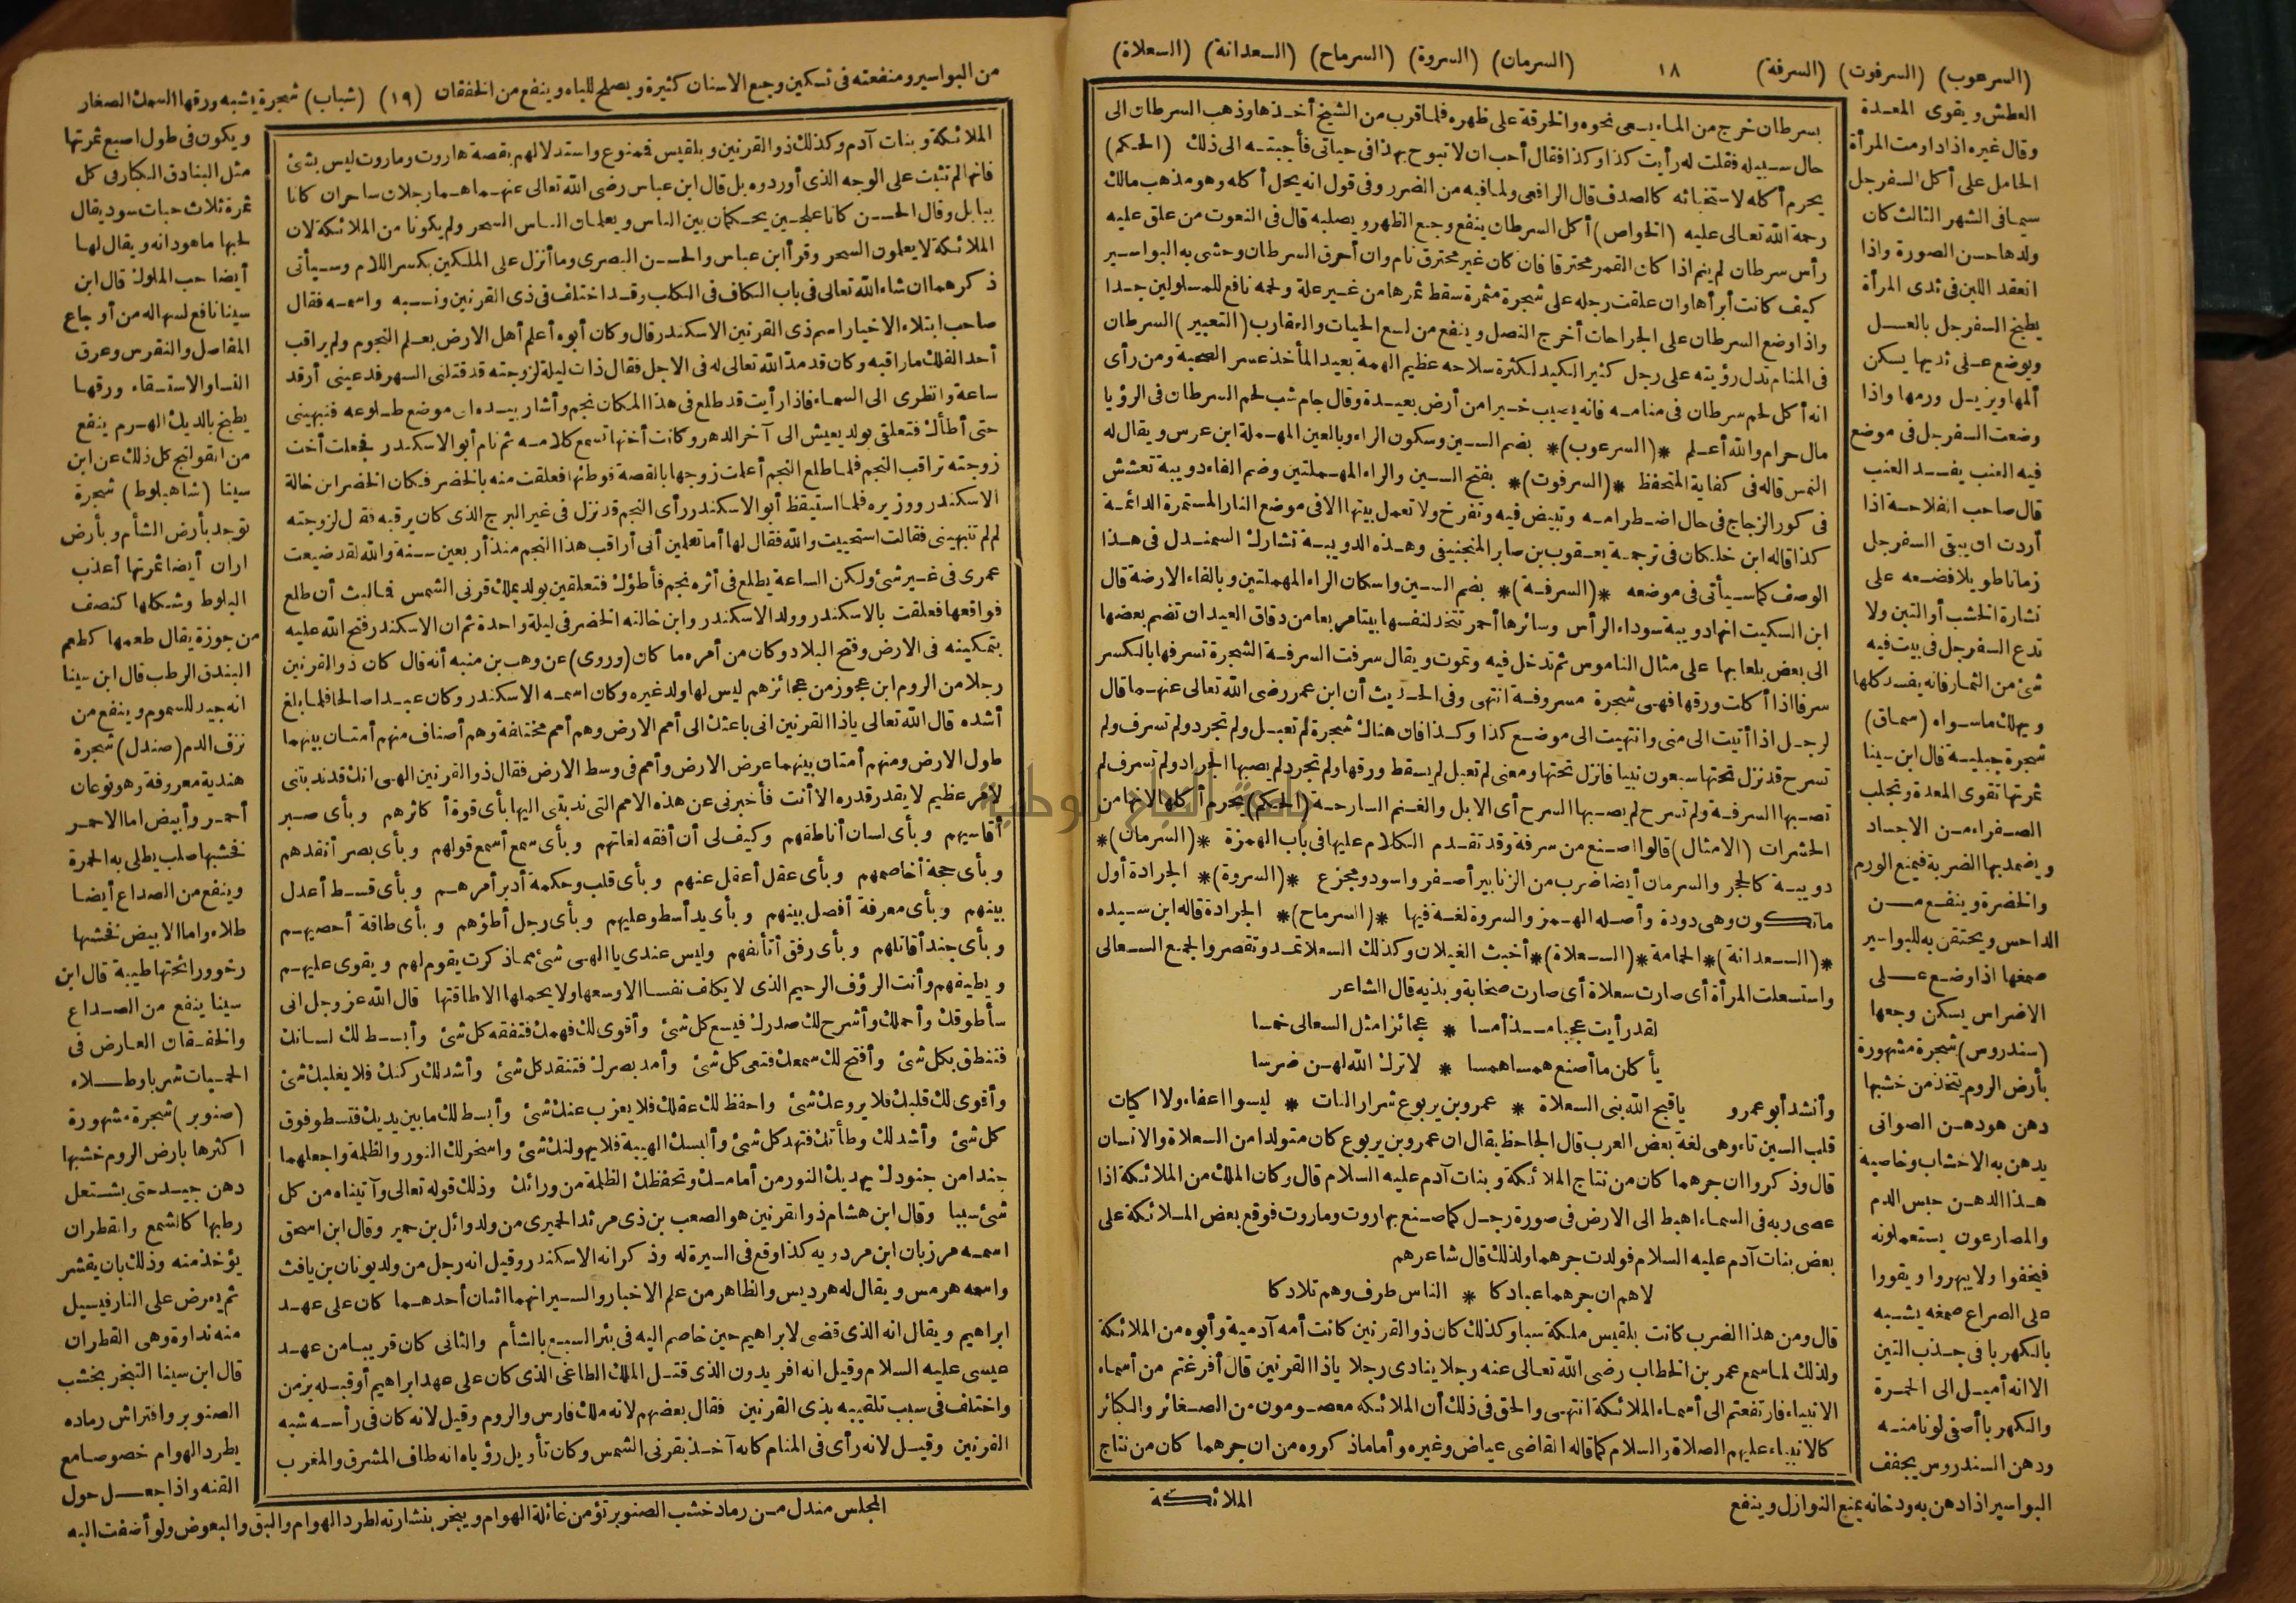 (السرعوب) (السرفوت) (السرفة) ١٨ (السرمان) (السروة) (السرماح) (السعدانة) (السعلاة)
بسرطان خرج من الماء يسعى نحوه والخرقة على ظهره فلما قرب من الشيخ أخذها وذهب السرطان الى
حال سبيله فقلت له رأيت كذا وكذا فقال أحب ان لا تبوح بهذا فى حياتى فأجبته الى ذلك (الحكم)
يحرم أكله لاستخباثه كالصدف قال الرافعى ولما فيه من الضرر وفى قول انه يحل أكله وهو مذهب مالك
رحمة الله تعالى عليه (الخواص) أكل السرطان ينفع وجع الظهر ويصلبه قال فى النعوت من علق عليه
رأس سرطان لم ينم اذا كان القمر محترقا فان كان غير محترق نام وان أحرق السرطان وحشى به البواسير
كيف كانت أبرأها وان علقت رجله على شجرة مثمرة سقط ثمرها من غير علة ولحمه نافع للمسلولين جدا
واذا وضع السرطان على الجراحات أخرج النصل وينفع من لسع الحيات والعقارب (التعبير) السرطان
فى المنام تدل رؤيته على رجل كثير الكيد لكثرة سلاحه عظيم الهمة بعيد المأخذ عسر الصحبة ومن رأى
انه أكل لحم سرطان فى منامه فانه يصيب خيرا من أرض بعيدة وقال جاماسب لحم السرطان فى الرؤيا
مال حرام والله أعلم *(السرعوب)* بضم السين وسكون الراء وبالعين المهملة ابن عرس ويقال له
النمس قاله فى كفاية المتحفظ *(السرفوت)* بفتح السين والراء المهملتين وضم الفاء دويبة تعشش
فى كور الزجاج فى حال اضطرامه وتبيض فيه وتفرخ ولا تعمل بيتها الا فى موضع النار المستمرة الدائمة
كذا قاله ابن خلكان فى ترجمة يعقوب بن صابر المنجنيقى وهذه الدويبة تشارك السمندل فى هذا
الوصف كما سيأتى فى موضعه *(السرفة)* بضم السين واسكان الراء المهملتين وبالفاء الارضة قال
ابن السكيت انها دويبة سوداء الرأس وسائرها أحمر تتخذ لنفسها بيتا مربعا من دقاق العيدان تضم بعضها
الى بعض بلعابها على مثال الناموس ثم تدخل فيه وتموت ويقال سرفت السرفة الشجرة تسرفها بالكسر
سرفا اذا أكلت ورقها فهى شجرة مسروفة انتهى وفى الحديث أن ابن عمر رضى الله تعالى عنهما قال
لرجل اذا أتيت الى منى وانتهيت الى موضع كذا وكذا فان هناك شجرة لم تعبل ولم تجرد ولم تسرف ولم
تسرح قد نزل تحتها سبعون نبيا فانزل تحتها ومعنى لم تعبل لم يسقط ورقها ولم تجرد لم يصبها الجراد ولم تسرف لم
تصبها السرفة ولم تسرح لم يصبها السرح أى الابل والغنم السارحة (الحكم) يحرم أكلها لانها من
الحشرات (الامثال) قالوا اصنع من سرفة وقد تقدم الكلام عليها فى باب الهمزة *(السرمان)*
دويبة كالحجر والسرمان أيضا ضرب من الزنابير أصفر واسود ومجزع *(السروة)* الجرادة أول
ماتكون وهى دودة وأصله الهمز والسروة لغة فيها *(السرماح)* الجرادة قاله ابن سيده
*(السعدانة)* الحمامة *(السعلاة)* أخبث الغيلان وكذلك السعلا تمد وتقصر والجمع السعالى
واستسعلت المرأة أى صارت سعلاة أى صارت صخابة وبذيه قال الشاعر
لقد رأيت عجبا مذ أمسا * عجائزا مثل السعالى خمسا
يأكلن ما أصنع همسا همسا * لا ترك الله لهن ضرسا
وأنشد أبو عمرو ياقبح الله بنى السعلاة * عمرو بن يربوع شرار النات * ليسوا اعفاء ولا اكيات
قلب السين تاء وهى لغة بعض العرب قال الجاحظ يقال ان عمرو بن يربوع كان متولدا من السعلاة والانسان
قال وذكروا ان جرهما كان من نتاج الملائكة وبنات آدم عليه السلام قال وكان الملك من الملائكة اذا
عصى ربه فى السماء اهبط الى الارض فى صورة رجل كما صنع بهاروت وماروت فوقع بعض الملائكة على
بعض بنات آدم عليه السلام فولدت جرهما ولذلك قال شاعرهم
لاهم ان جرهما عبادكا * الناس طرف وهم تلادكا
قال ومن هذا الضرب كانت بلقيس ملكة سبا وكذلك كان ذو القرنين كانت أمه آدمية وأبوه من الملائكة
ولذلك لما سمع عمر بن الخطاب رضى الله تعالى عنه رجلا ينادى رجلا ياذا القرنين قال أفرغتم من أسماء
الانبياء فارتفعتم الى أسماء الملائكة انتهى والحق فى ذلك أن الملائكة معصومون من الصغائر والكبائر
كالانبياء عليهم الصلاة والسلام كما قاله القاضى عياض وغيره وأما ماذكروه من ان جرهما كان من نتاج
الملائكة
العطش ويقوى المعدة
وقال غيره اذا داومت المرأة
الحامل على أكل السفرجل
سيما فى الشهر الثالث كان
ولدها حسن الصورة واذا
انعقد اللبن فى ثدى المرأة
يطبخ السفرجل بالعسل
ويوضع على ثديها يسكن
ألمها ويزيل ورمها واذا
وضعت السفرجل فى موضع
فيه العنب يفسد العنب
قال صاحب الفلاحة اذا
أردت ان يبقى السفرجل
زمانا طويلا فضعه على
نشارة الخشب أو التبن ولا
تدع السفرجل فى بيت فيه
شئ من الثمار فانه يفسد كلها
ويهلك ماسواه (سماق)
شجرة جبلية قال ابن سينا
ثمرتها تقوى المعدة وتجلب
الصفراء من الاجساد
ويضمد بها الضربة فيمنع الورم
والخضرة وينفع من
الداحس ويحتقن به للبواسير
صمغها اذا وضع على
الاضراس يسكن وجعها
(سندروس) شجرة مشهورة
بأرض الروم يتخذ من خشبها
دهن هو دهن الصوانى
يدهن به الاخشاب وخاصية
هذا الدهن حبس الدم
والمصارعون يستعملونه
فيخفوا ولا يبهروا ويقووا
على الصراع صمغه يشبه
بالكهربا فى جذب التبن
الا انه أميل الى الحمرة
والكهربا أصفى لونا منه
ودهن السندروس يجفف
البواسير اذا دهن به ودخانه يمنع النوازل وينفع
من البواسير ومنفعته فى تسكين وجع الاسنان كثيرة ويصلح للباه وينفع من الخفقان (١٩) (شباب) شجرة يشبه ورقها السمك الصغار
الملائكة وبنات آدم وكذلك ذو القرنين وبلقيس فممنوع واستدلالهم بقصة هاروت وماروت ليس بشئ
فانها لم تثبت على الوجه الذى أوردوه بل قال ابن عباس رضى الله تعالى عنهما هما رجلان ساحران كانا
ببابل وقال الحسن كانا علجين يحكمان بين الناس ويعلمان الناس السحر ولم يكونا من الملائكة لان
الملائكة لا يعلمون السحر وقرأ ابن عباس والحسن البصرى وما أنزل على الملكين بكسر اللام وسيأتى
ذكرهما ان شاء الله تعالى فى باب الكاف فى الكلب وقد اختلف فى ذى القرنين ونسبه واسمه فقال
صاحب ابتلاء الاخيار اسم ذى القرنين الاسكندر قال وكان أبوه أعلم أهل الارض بعلم النجوم ولم يراقب
أحد الفلك ماراقبه وكان قد مد الله تعالى له فى الاجل فقال ذات ليلة لزوجته قد قتلنى السهر فدعينى أرقد
ساعة وانظرى الى السماء فاذا رأيت قد طلع فى هذا المكان نجم وأشار بيده الى موضع طلوعه فنبهينى
حتى أطأك فتعلقى بولد يعيش الى آخر الدهر وكانت أختها تسمع كلامه ثم نام أبو الاسكندر فجعلت أخت
زوجته تراقب النجم فلما طلع النجم أعلمت زوجها بالقصة فوطئها فعلقت منه بالخضر فكان الخضر ابن خالة
الاسكندر ووزيره فلما استيقظ أبو الاسكندر رأى النجم قد نزل فى غير البرج الذى كان يرقبه فقال لزوجته
لم لم تنبهينى فقالت استحييت والله فقال لها أما تعلمين أنى أراقب هذا النجم منذ أربعين سنة والله لقد ضيعت
عمرى فى غير شئ ولكن الساعة يطلع فى أثره نجم فأطؤك فتعلقين بولد يملك قرنى الشمس فما لبث أن طلع
فواقعها فعلقت بالاسكندر وولد الاسكندر وابن خالته الخضر فى ليلة واحدة ثم ان الاسكندر فتح الله عليه
بتمكينه فى الارض وفتح البلاد وكان من أمره ما كان (وروى) عن وهب بن منبه أنه قال كان ذو القرنين
رجلا من الروم ابن عجوز من عجائزهم ليس لها ولد غيره وكان اسمه الاسكندر وكان عبدا صالحا فلما بلغ
أشده قال الله تعالى ياذا القرنين انى باعثك الى أمم الارض وهم أمم مختلفة وهم أصناف منهم أمتان بينهما
طول الارض ومنهم أمتان بينهما عرض الارض وأمم فى وسط الارض فقال ذو القرنين الهى انك قد ندبتنى
لامر عظيم لا يقدر قدره الا أنت فأخبرنى عن هذه الامم التى ندبتنى اليها بأى قوة أكاثرهم وبأى صبر
أقاسيهم وبأى لسان أناطقهم وكيف لى أن أفقه لغاتهم وبأى سمع أسمع قولهم وبأى بصر أنقدهم
وبأى حجة أخاصمهم وبأى عقل أعقل عنهم وبأى قلب وحكمة أدبر أمرهم وبأى قسط أعدل
بينهم وبأى معرفة أفصل بينهم وبأى يد أسطو عليهم وبأى رجل أطؤهم وبأى طاقة أحصيهم
وبأى جند أقاتلهم وبأى رفق أتألفهم وليس عندى ياالهى شئ مما ذكرت يقوم لهم ويقوى عليهم
ويطيقهم وأنت الرؤف الرحيم الذى لا يكلف نفسا الا وسعها ولا يحملها الا طاقتها قال الله عز وجل انى
سأطوقك وأحملك وأشرح لك صدرك فيسع كل شئ وأقوى لك فهمك فتفقه كل شئ وأبسط لك لسانك
فتنطق بكل شئ وأفتح لك سمعك فتعى كل شئ وأمد بصرك فتنقد كل شئ وأشد لك ركنك فلا يغلبك شئ
وأقوى لك قلبك فلا يروعك شئ واحفظ لك عقلك فلا يعزب عنك شئ وأبسط لك ما بين يديك فتسطو فوق
كل شئ وأشد لك وطأتك فتهد كل شئ وألبسك الهيبة فلا يهولنك شئ واسخر لك النور والظلمة واجعلهما
جندا من جنودك يهديك النور من أمامك وتحفظك الظلمة من ورائك وذلك قوله تعالى وآتيناه من كل
شئ سببا وقال ابن هشام ذو القرنين هو الصعب بن ذى مرثد الحميرى من ولد وائل بن حمير وقال ابن اسحق
اسمه مرزبان ابن مردويه كذا وقع فى السيرة له وذكر انه الاسكندر وقيل انه رجل من ولد يونان بن يافث
واسمه هرمس ويقال له هرديس والظاهر من علم الاخبار والسير انهما اثنان أحدهما كان على عهد
ابراهيم ويقال انه الذى قضى لابراهيم حين خاصم اليه فى بئر السبع بالشأم والثانى كان قريبا من عهد
عيسى عليه السلام وقيل انه افريدون الذى قتل الملك الطاغى الذى كان على عهد ابراهيم أو قبله بزمن
واختلف فى سبب تلقيبه بذى القرنين فقال بعضهم لانه ملك فارس والروم وقيل لانه كان فى رأسه شبه
القرنين وقيل لانه رأى فى المنام كانه آخذ بقرنى الشمس وكان تأويل رؤياه انه طاف المشرق والمغرب
ويكون فى طول اصبع ثمرتها
مثل البنادق الكبار فى كل
ثمرة ثلاث حبات سود يقال
لحبها ماهودانه ويقال لها
أيضا حب الملوك قال ابن
سينا نافع لسهاله من أوجاع
المفاصل والنقرس وعرق
النسا والاستسقاء ورقها
يطبخ بالديك الهرم ينفع
من القولنج كل ذلك عن ابن
سينا (شاهبلوط) شجرة
توجد بأرض الشأم وبأرض
اران أيضا ثمرتها أعذب
البلوط وشكلها كنصف
من جوزة يقال طعمها كطعم
البندق الرطب قال ابن سينا
انه جيد للسموم وينفع من
نزف الدم (صندل) شجرة
هندية معروفة وهو نوعان
أحمر وأبيض اما الاحمر
فخشبها صلب يطلى به الحمرة
وينفع من الصداع أيضا
طلاء واما الابيض فخشبها
رخو ورائحتها طيبة قال ابن
سينا ينفع من الصداع
والخفقان العارض فى
الحميات شربا وطلاء
(صنوبر) شجرة مشهورة
اكثرها بارض الروم خشبها
دهن جيد حتى يشتعل
رطبها كالشمع والقطران
يؤخذ منه وذلك بان يقشر
ثم يعرض على النار فيسيل
منه نداوة وهى القطران
قال ابن سينا التبخر بخشب
الصنوبر وافتراش رماده
يطرد الهوام خصوصا مع
القنه واذا جعل حول
المجلس مندل من رماد خشب الصنوبر تؤمن غائلة الهوام ويبخر بنشارته لطرد الهوام والبق والبعوض ولو أضفت اليه